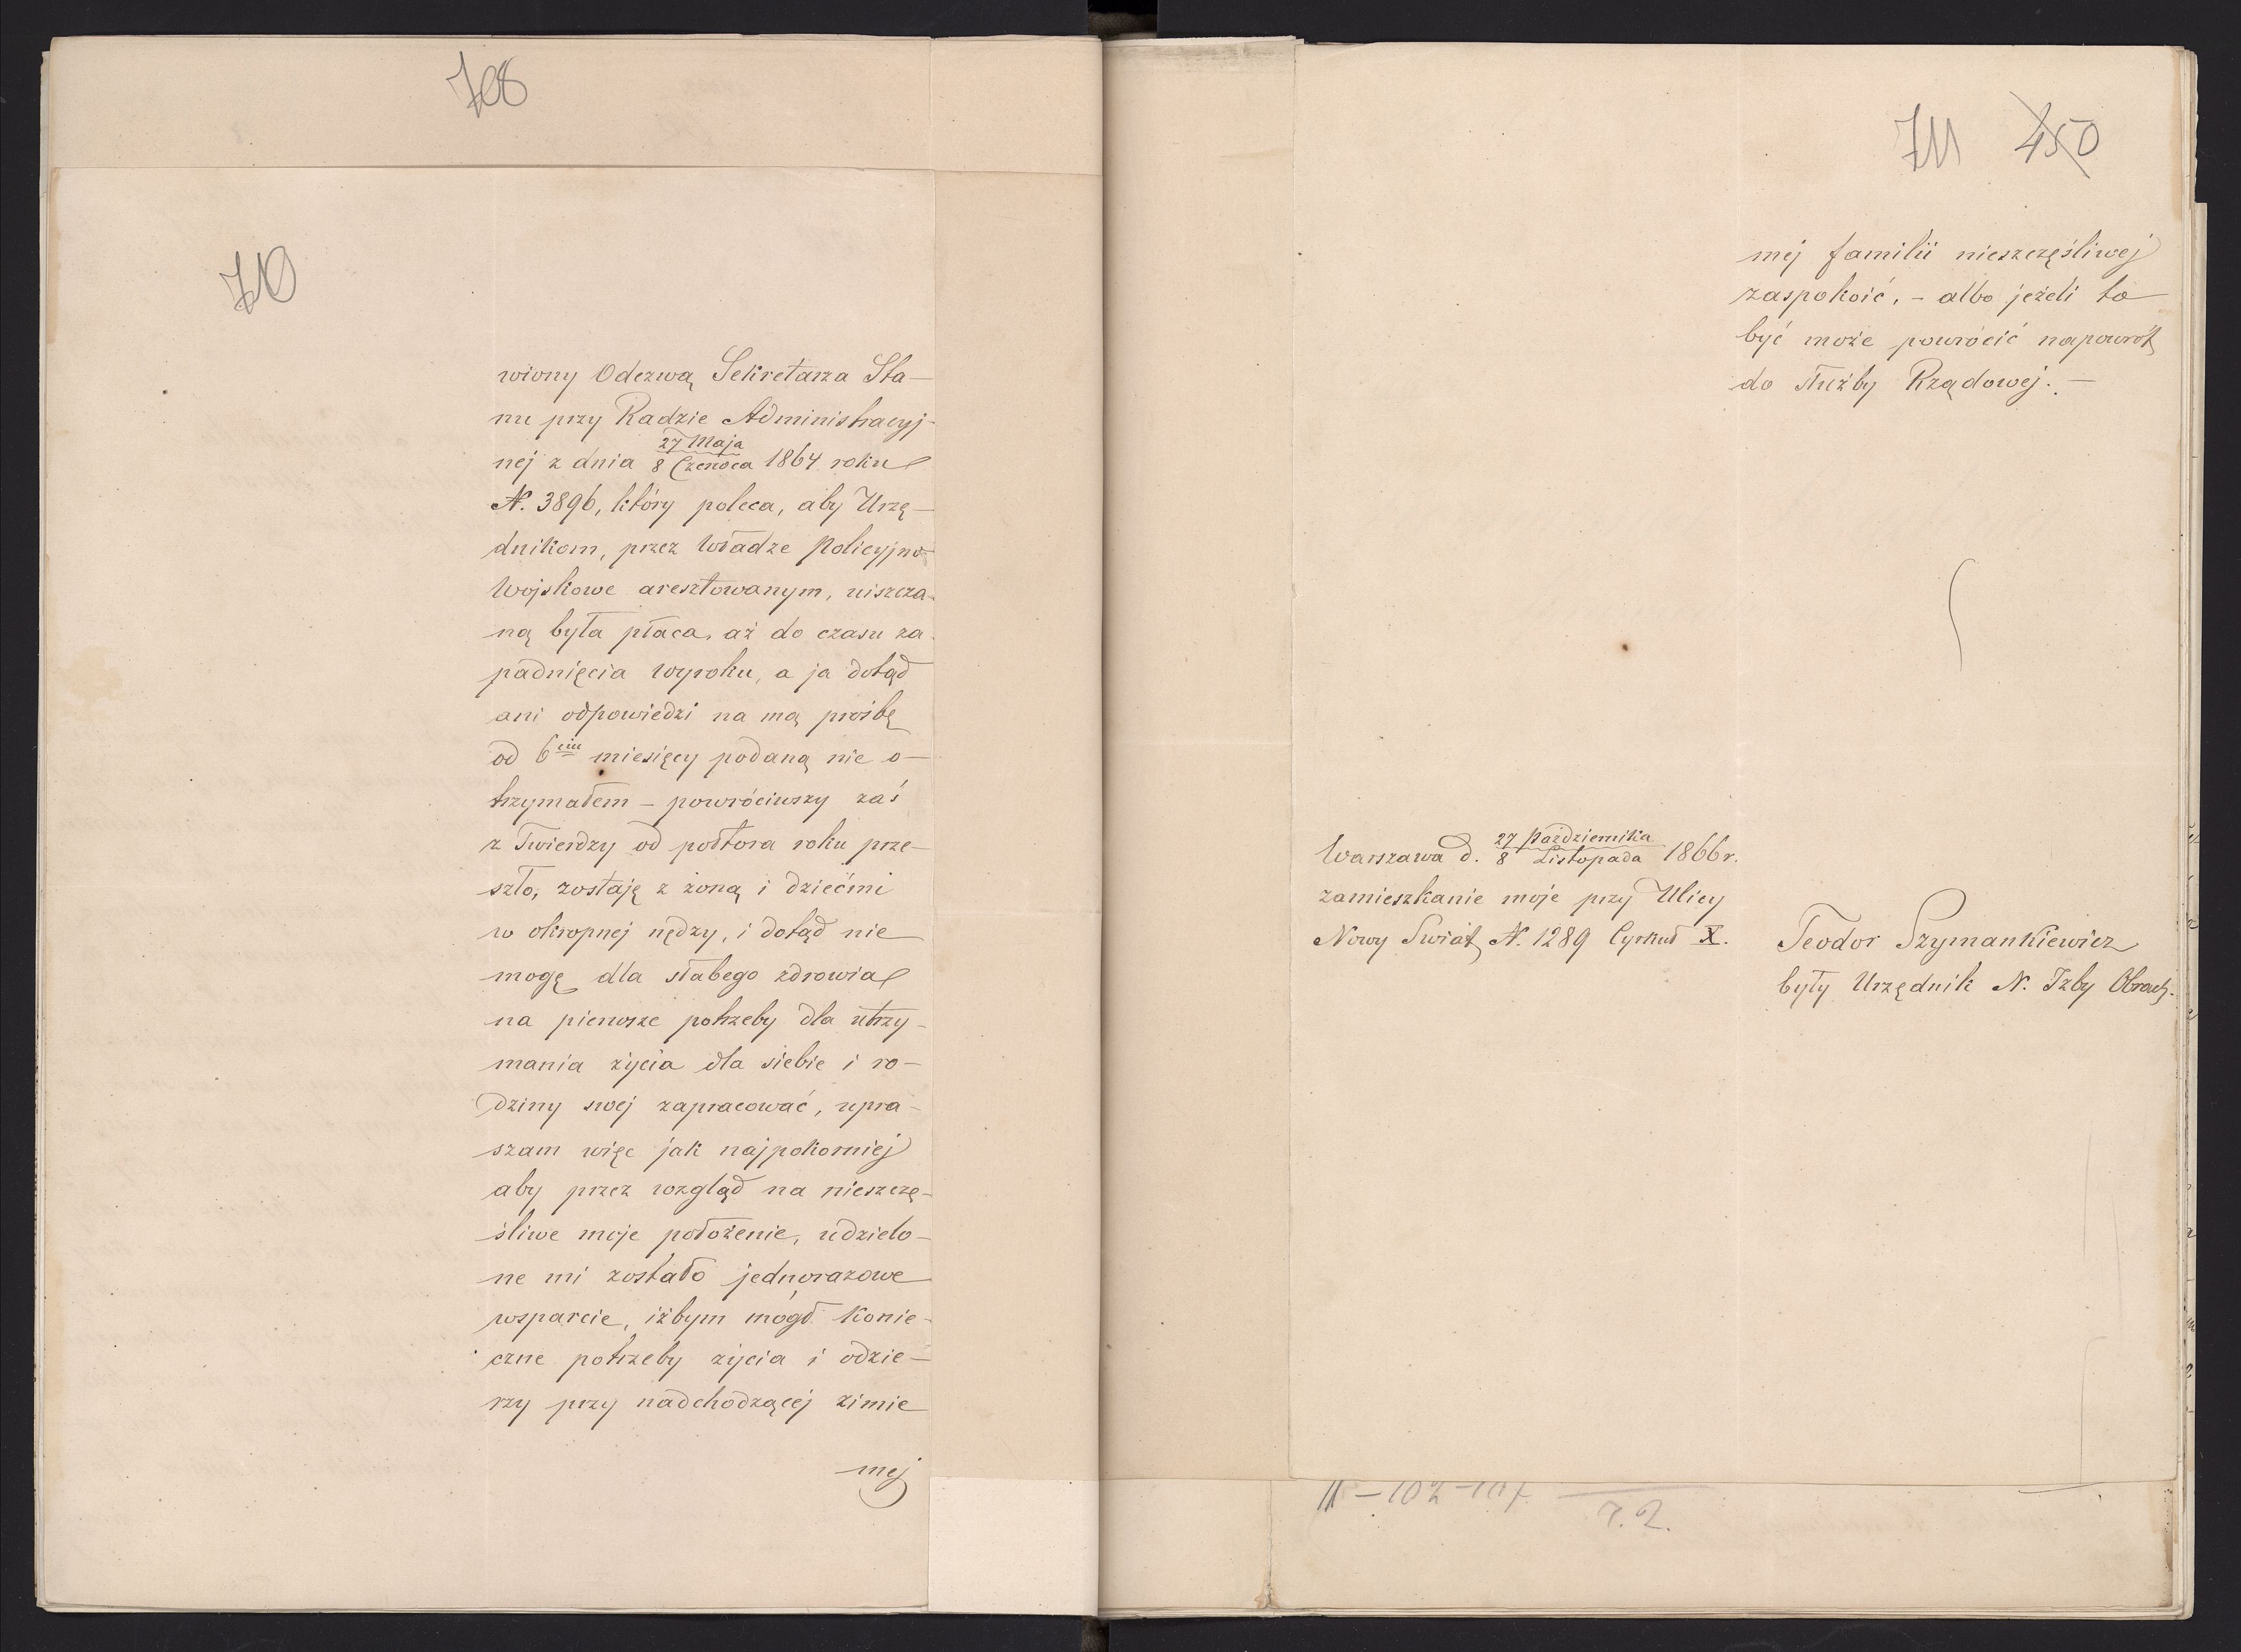 708
710
wiony Odezwą Sekretarza Sta-
nu przy Radzie Administracyj-
27 Maja
nej z dnia 8 Czerwca 1864 roku
N. 3896, który poleca, aby Urzę-
dnikom, przez Władze Policyjno
Wojskowe aresztowanym, uiszcza-
ną była płaca, aż do czasu za-
padnięcia wyroku, a ja dotąd
ani odpowiedzi na mą prośbę
od 6ciu miesięcy podaną nie o-
trzymałem – powróciwszy zaś
z Twierdzy od półtora roku prze-
szło, zostaję z żoną i dziećmi
w okropnej nędzy, i dotąd nie
mogę dla słabego zdrowia
na pierwsze potrzeby dla utrzy-
mania życia dla siebie i ro-
dziny swej zapracować, upra-
szam więc jak najpokorniej
aby przez wzgląd na nieszczę-
śliwe moje położenie, udzielo-
ne mi zostało jednorazowe
wsparcie, iżbym mógł konie-
czne potrzeby życia i odzie-
rzy przy nadchodzącej zimie
mej
711 450
mej familii nieszczęśliwej
zaspokoić, – albo jeżeli to
być może powrócić napowrót
do służby Rządowej. –
27 Października
Warszawa d. 8 Listopada 1866 r.
zamieszkanie moje przy Ulicy
Nowy Świat N. 1289 Cyrkuł X.
Teodor Szymankiewicz
były Urzędnik N. Izby Obrach.